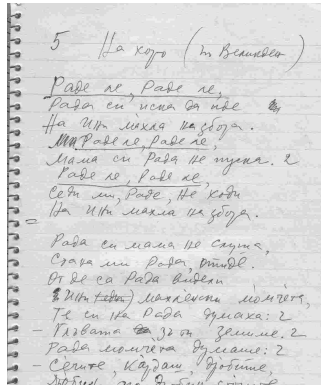 5 На хоро (на Великден)
Раде ле, Раде ле,
Рада си иска да иде
На Ини махла на збора.
Раде ле, Раде ле,
Мама си Рада не пуска. 2
Раде ле, Раде ле,
Седи ми, Раде, не ходи
На Ини махла на збора.
=
Рада си мама не слуша,
Стана ми Рада, отиде.
От де са Рада видели
махленски момчета,
Те си на Рада думаха: 2
- Главата зъ от земиме. 2
Рада момчета думаше: 2
- Сечите, дробите,